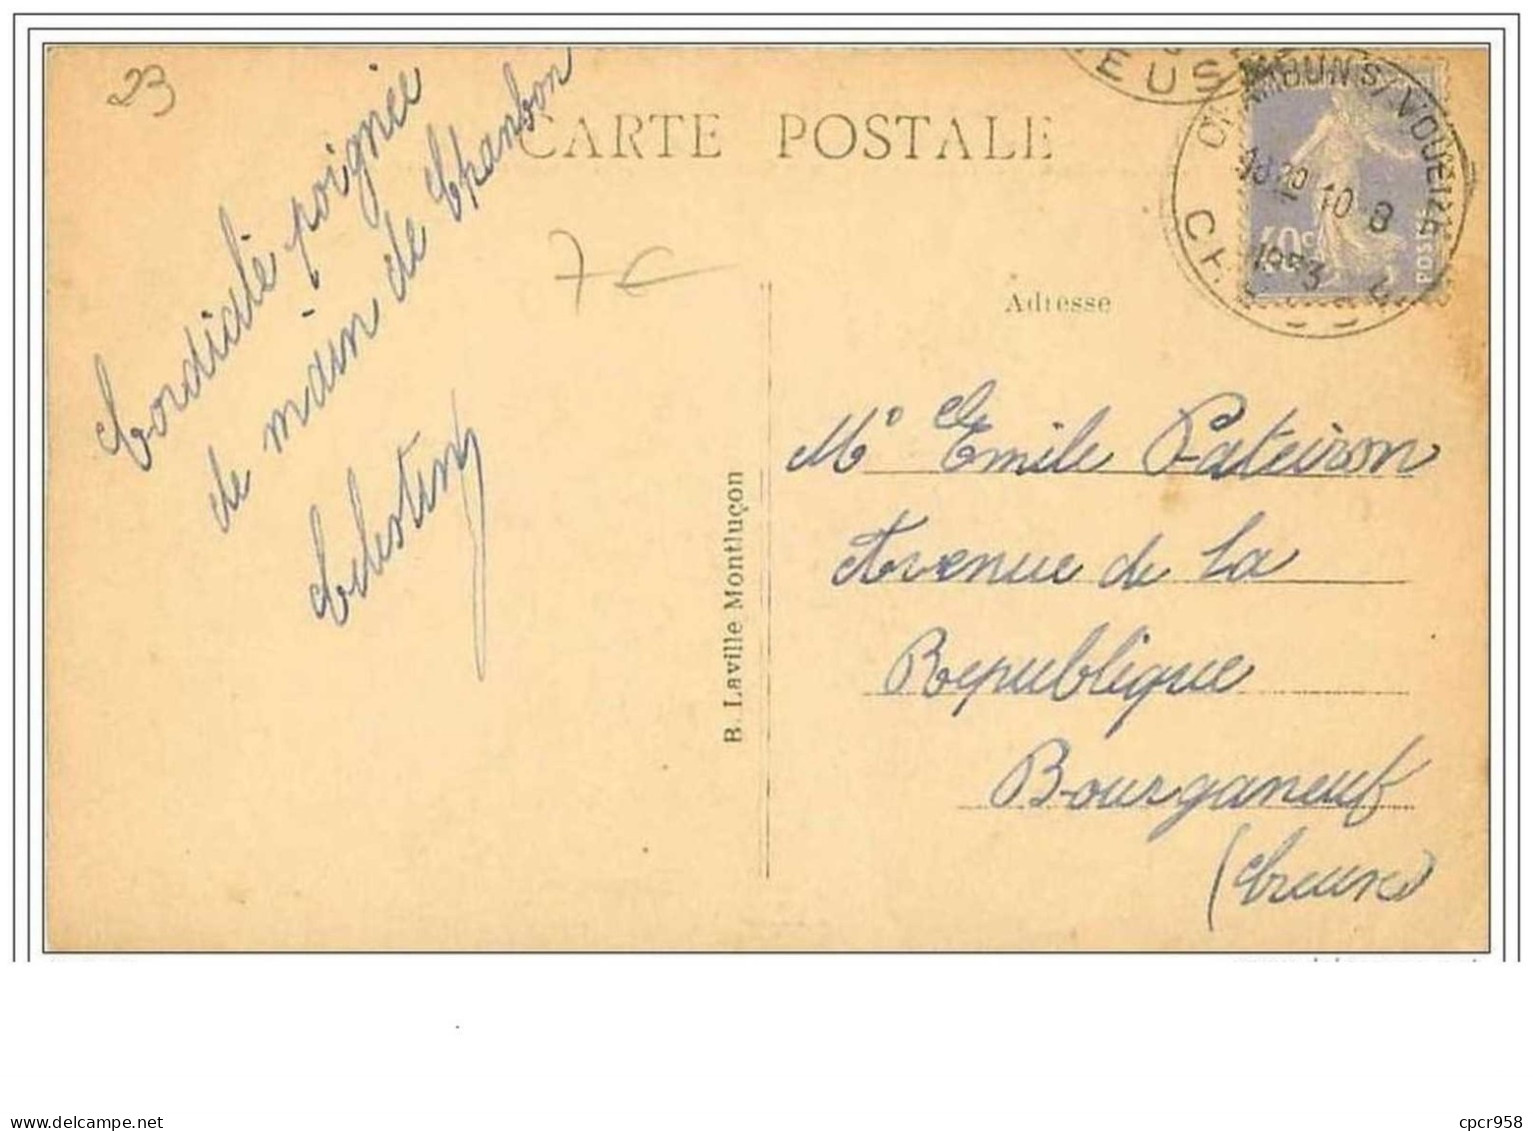 23
Cordiale poignée
de main de Chanbon
Célestin
CARTE POSTALE
7€
Adresse
B. Laville Montluçon
Mr Emile Pateiron
Avenue de la
Republique
Bourganeuf
(Creuse)
EUS
CHAMBON S/VOUEIZE
18 20 10 8
1933
40c
POSTES
cpcr958